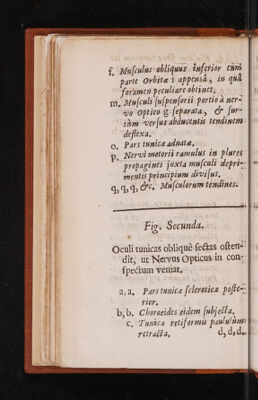 f. Muſculus obliquus inferior cum
parte Orbitæ i appenſâ, in quâ
foramen peculiare obtinet.
m. Muſculi ſuſpenſorii portio à ner-
vo Optico g ſeparata, & ſur-
sùm verſus abducentis tendinem
deflexa.
o. Pars tunicæ adnatæ.
p. Nervi motorii ramulus in plures
propagines juxta muſculi depri-
mentis principium diviſus.
q, q, q, &c. Muſculorum tendines.
Fig. Secunda.
Oculi tunicas obliquè ſectas oſten-
dit, ut Nervus Opticus in con-
ſpectum veniat.
a, a. Pars tunicæ ſcleroticæ poſte-
rior.
b, b. Choroeides eidem ſubjecta.
c. Tunica retiformis paululùm
retracta.
d, d, d,